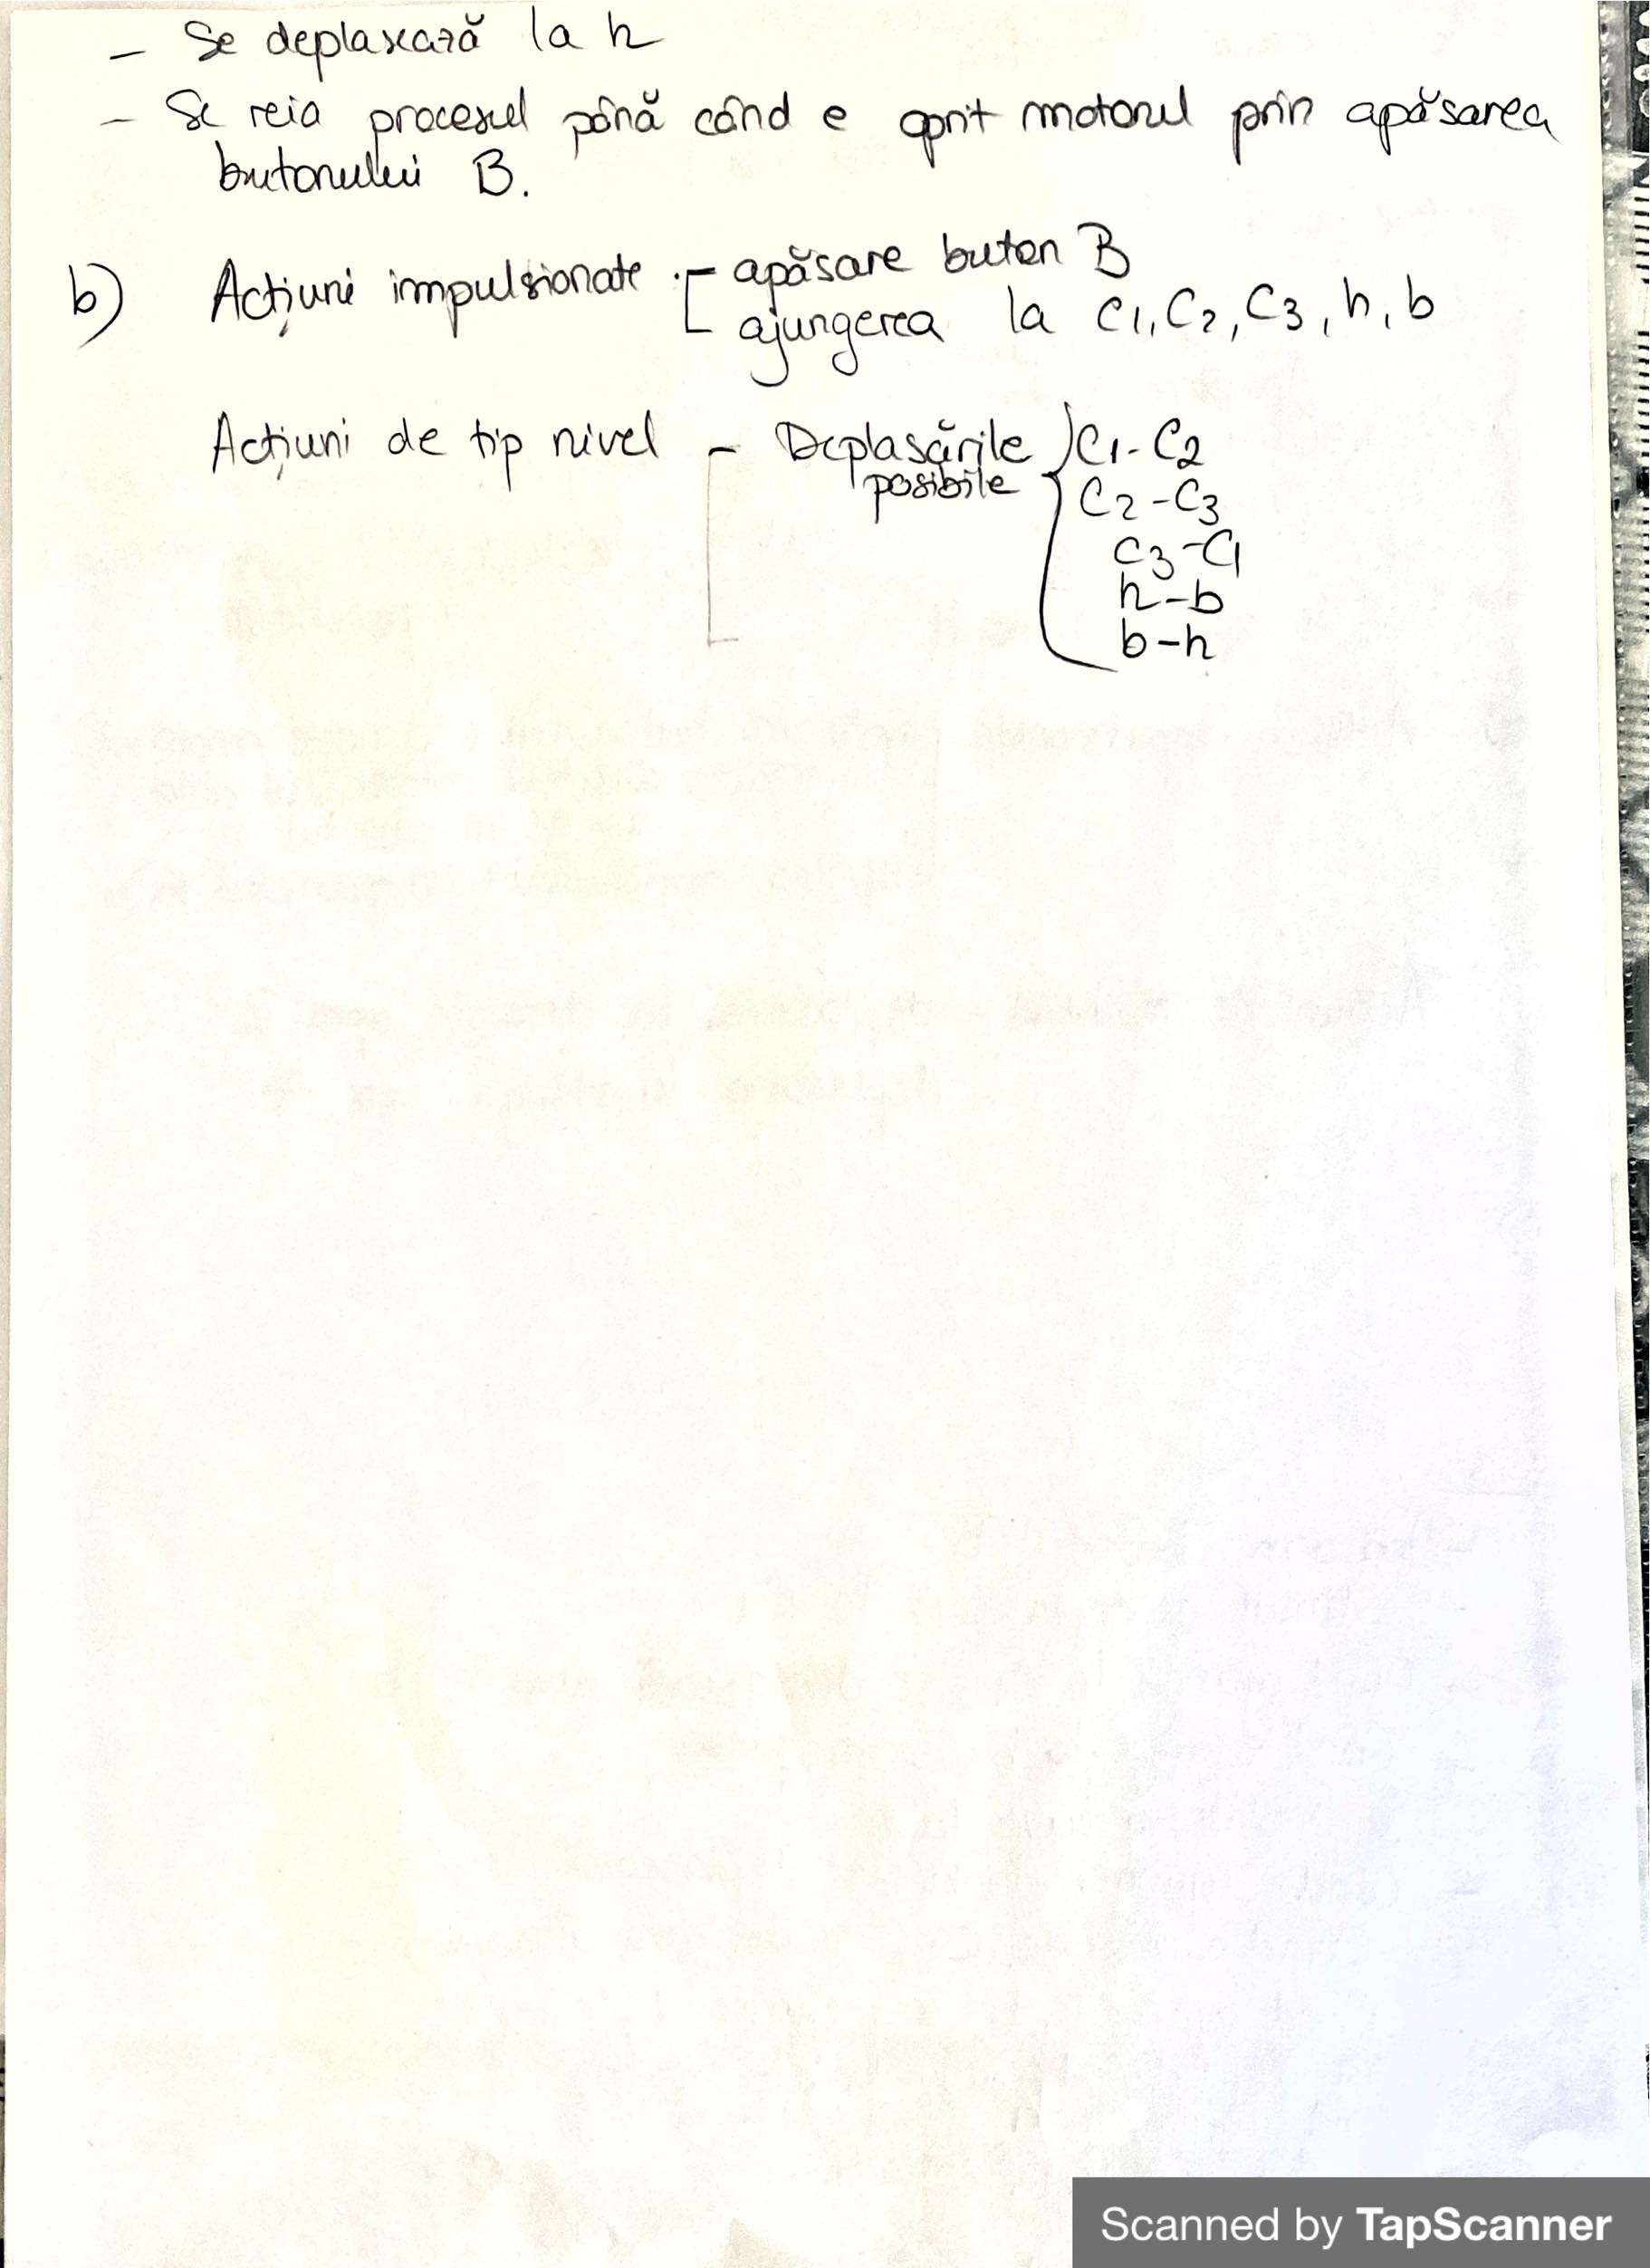 - Se deplasează la h
- Se reia procesul până când e oprit motorul prin apăsarea
butonului B.
b) Acțiuni impulsionate - apăsare buton B
ajungerea la C1, C2, C3, h, b
Acțiuni de tip nivel - Deplasările C1-C2
posibile C2-C3
C3-C1
h-b
b-h
Scanned by TapScanner